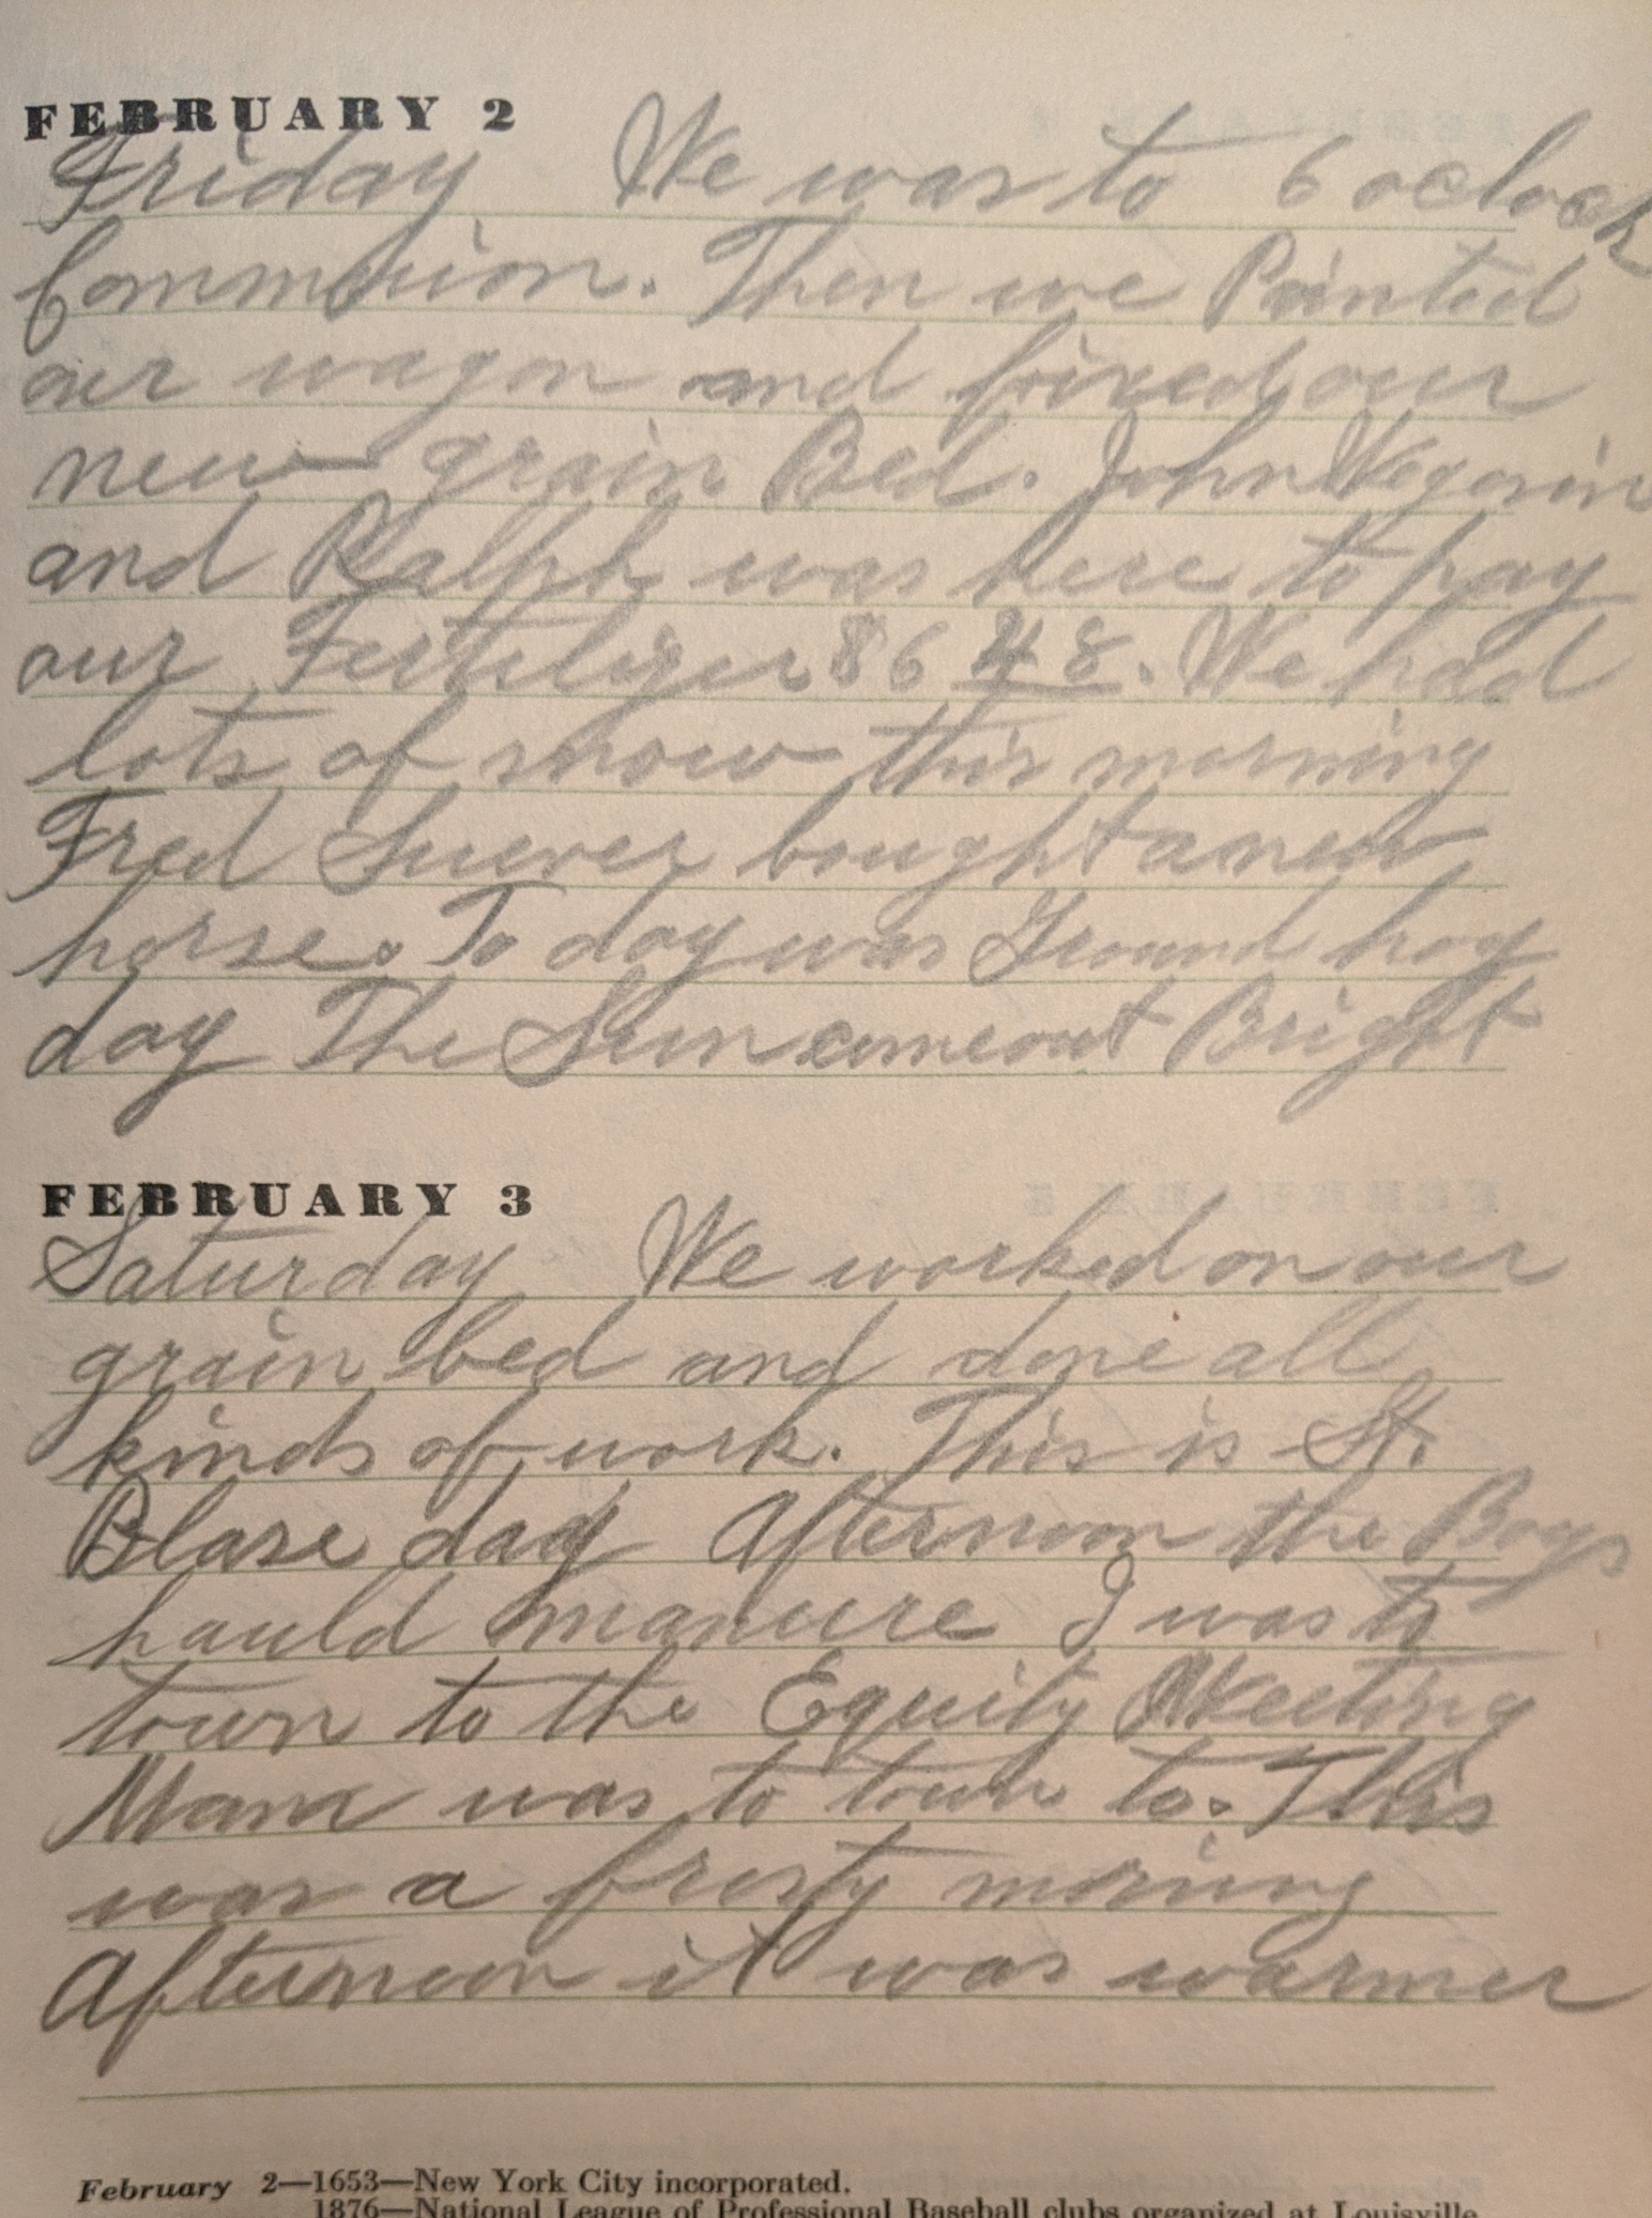 FEBRUARY 2
Friday We was to 6 oclock
Commuion. Then we Painted
our wagon and fixed our
new grain Bed. John
and Ralph was here to pay
our Fertelizer 86 48. We had
lots of snow this morning
Fred Suever bought a new
horse. To day was Ground hog
day The Sun came out Bright
FEBRUARY 3
Saturday We worked on our
grain bed and done all
kinds of work. This is St.
Blase day Afternoon the Boys
hauld manure I was to
town to the Equity Meeting
Mam was to town to. This
was a frosty morning
Afternoon it was warmer
February 2—1653—New York City incorporated.
1876—National League of Professional Baseball clubs organized at Louisville